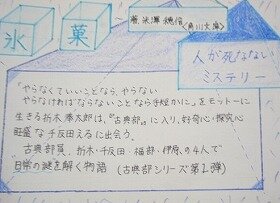 氷菓
～著．米澤穂信〈角川文庫〉
人が死なない
ミステリー
「やらなくていいことなら、やらない
やらなければならないことなら手短かに。」をモットーに
生きる折木奉太郎は、『古典部』に入り、好奇心・探究心
旺盛な千反田えるに出会う。
古典部員、折木・千反田・福部・伊原、の4人で
日常の謎を解く物語 （古典部シリーズ第1弾）